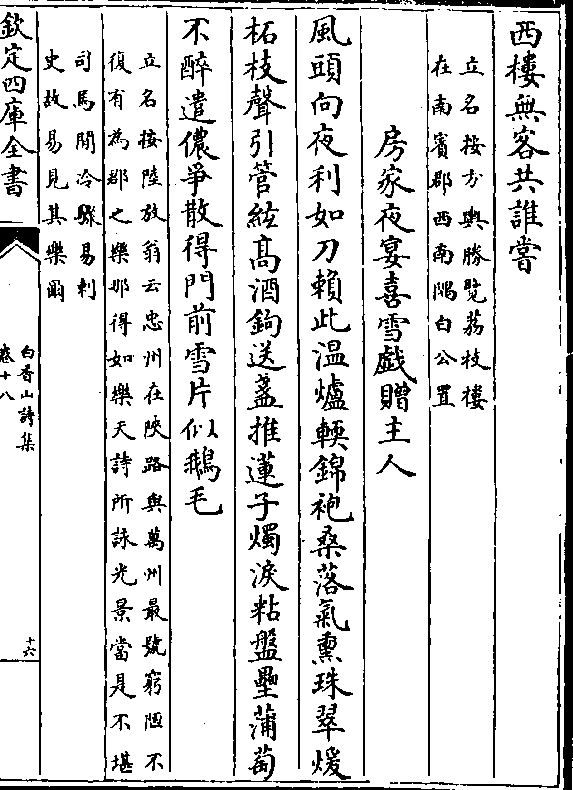 西樓無客共誰嘗
立名按方輿勝覧荔枝樓
在南賓郡西南隅白公置
房家夜宴喜雪戯贈主人
風頭向夜利如刀賴此温爐輭錦袍桑落氣熏珠翠煖
柘枝聲引管絃髙酒鉤送盞推蓮子燭淚粘盤壘蒲萄
不醉遣儂爭散得門前雪片似鵝毛
立名按陸放翁云忠州在陜路與萬州最號窮陋不
復有為郡之樂那得如樂天詩所詠光景當是不堪
司馬閒冷驟易刺
史故易見其樂爾
欽定四庫全書
白香山詩集
卷十八
十六